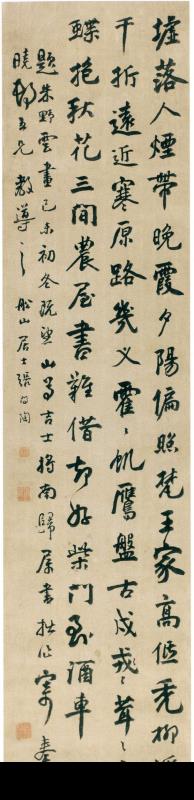 墟落人煙帶晚霞夕陽偏照梵王家高低禿柳
千折遠近寒原路幾叉霍霍飢鷹盤古戍茸茸
蝶抱秋花三間農屋書難借却好柴門到酒車
題朱野雲畫己未初冬疏
山吉士將南歸屬書拙作寄奉
曉五兄教導之 船山居士張問陶